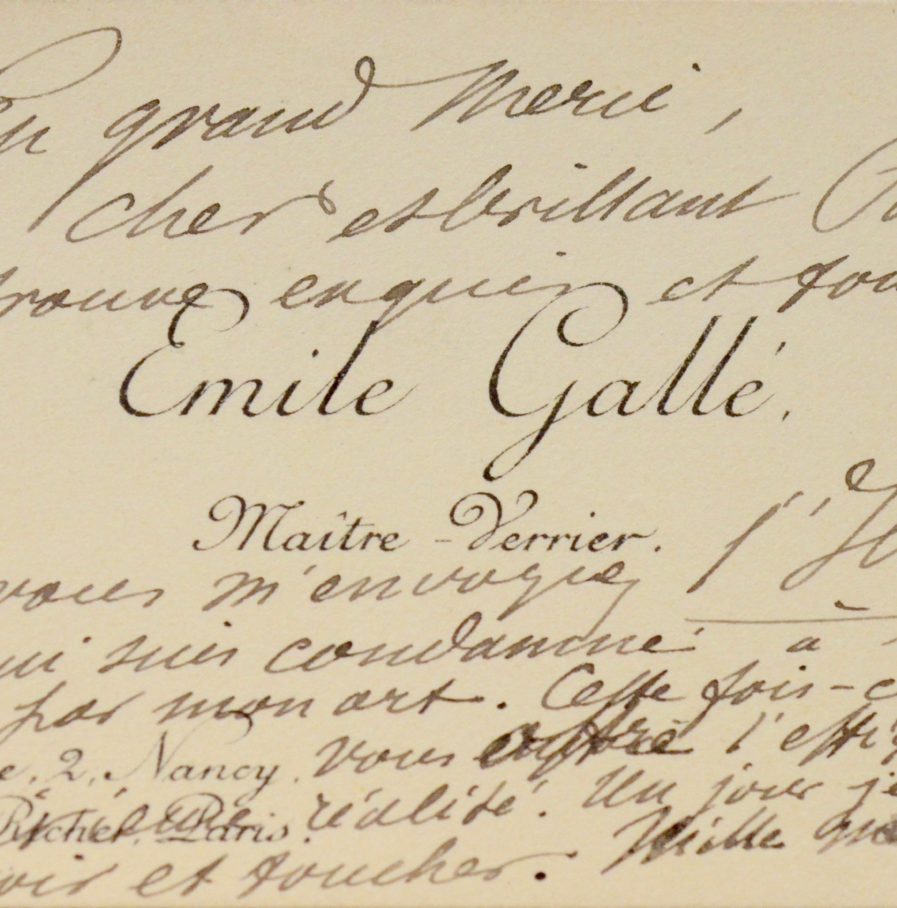 Un grand merci,
cher et brillant
trouve exquis et
Emile Gallé.
Maître-Verrier.
vous m'envoyez l'
qui suis condamné à
par mon art. Cette fois-c
e, 2, Nancy. vous l'
Richer. Paris. réalité. Un jour je
voir et toucher. Mille